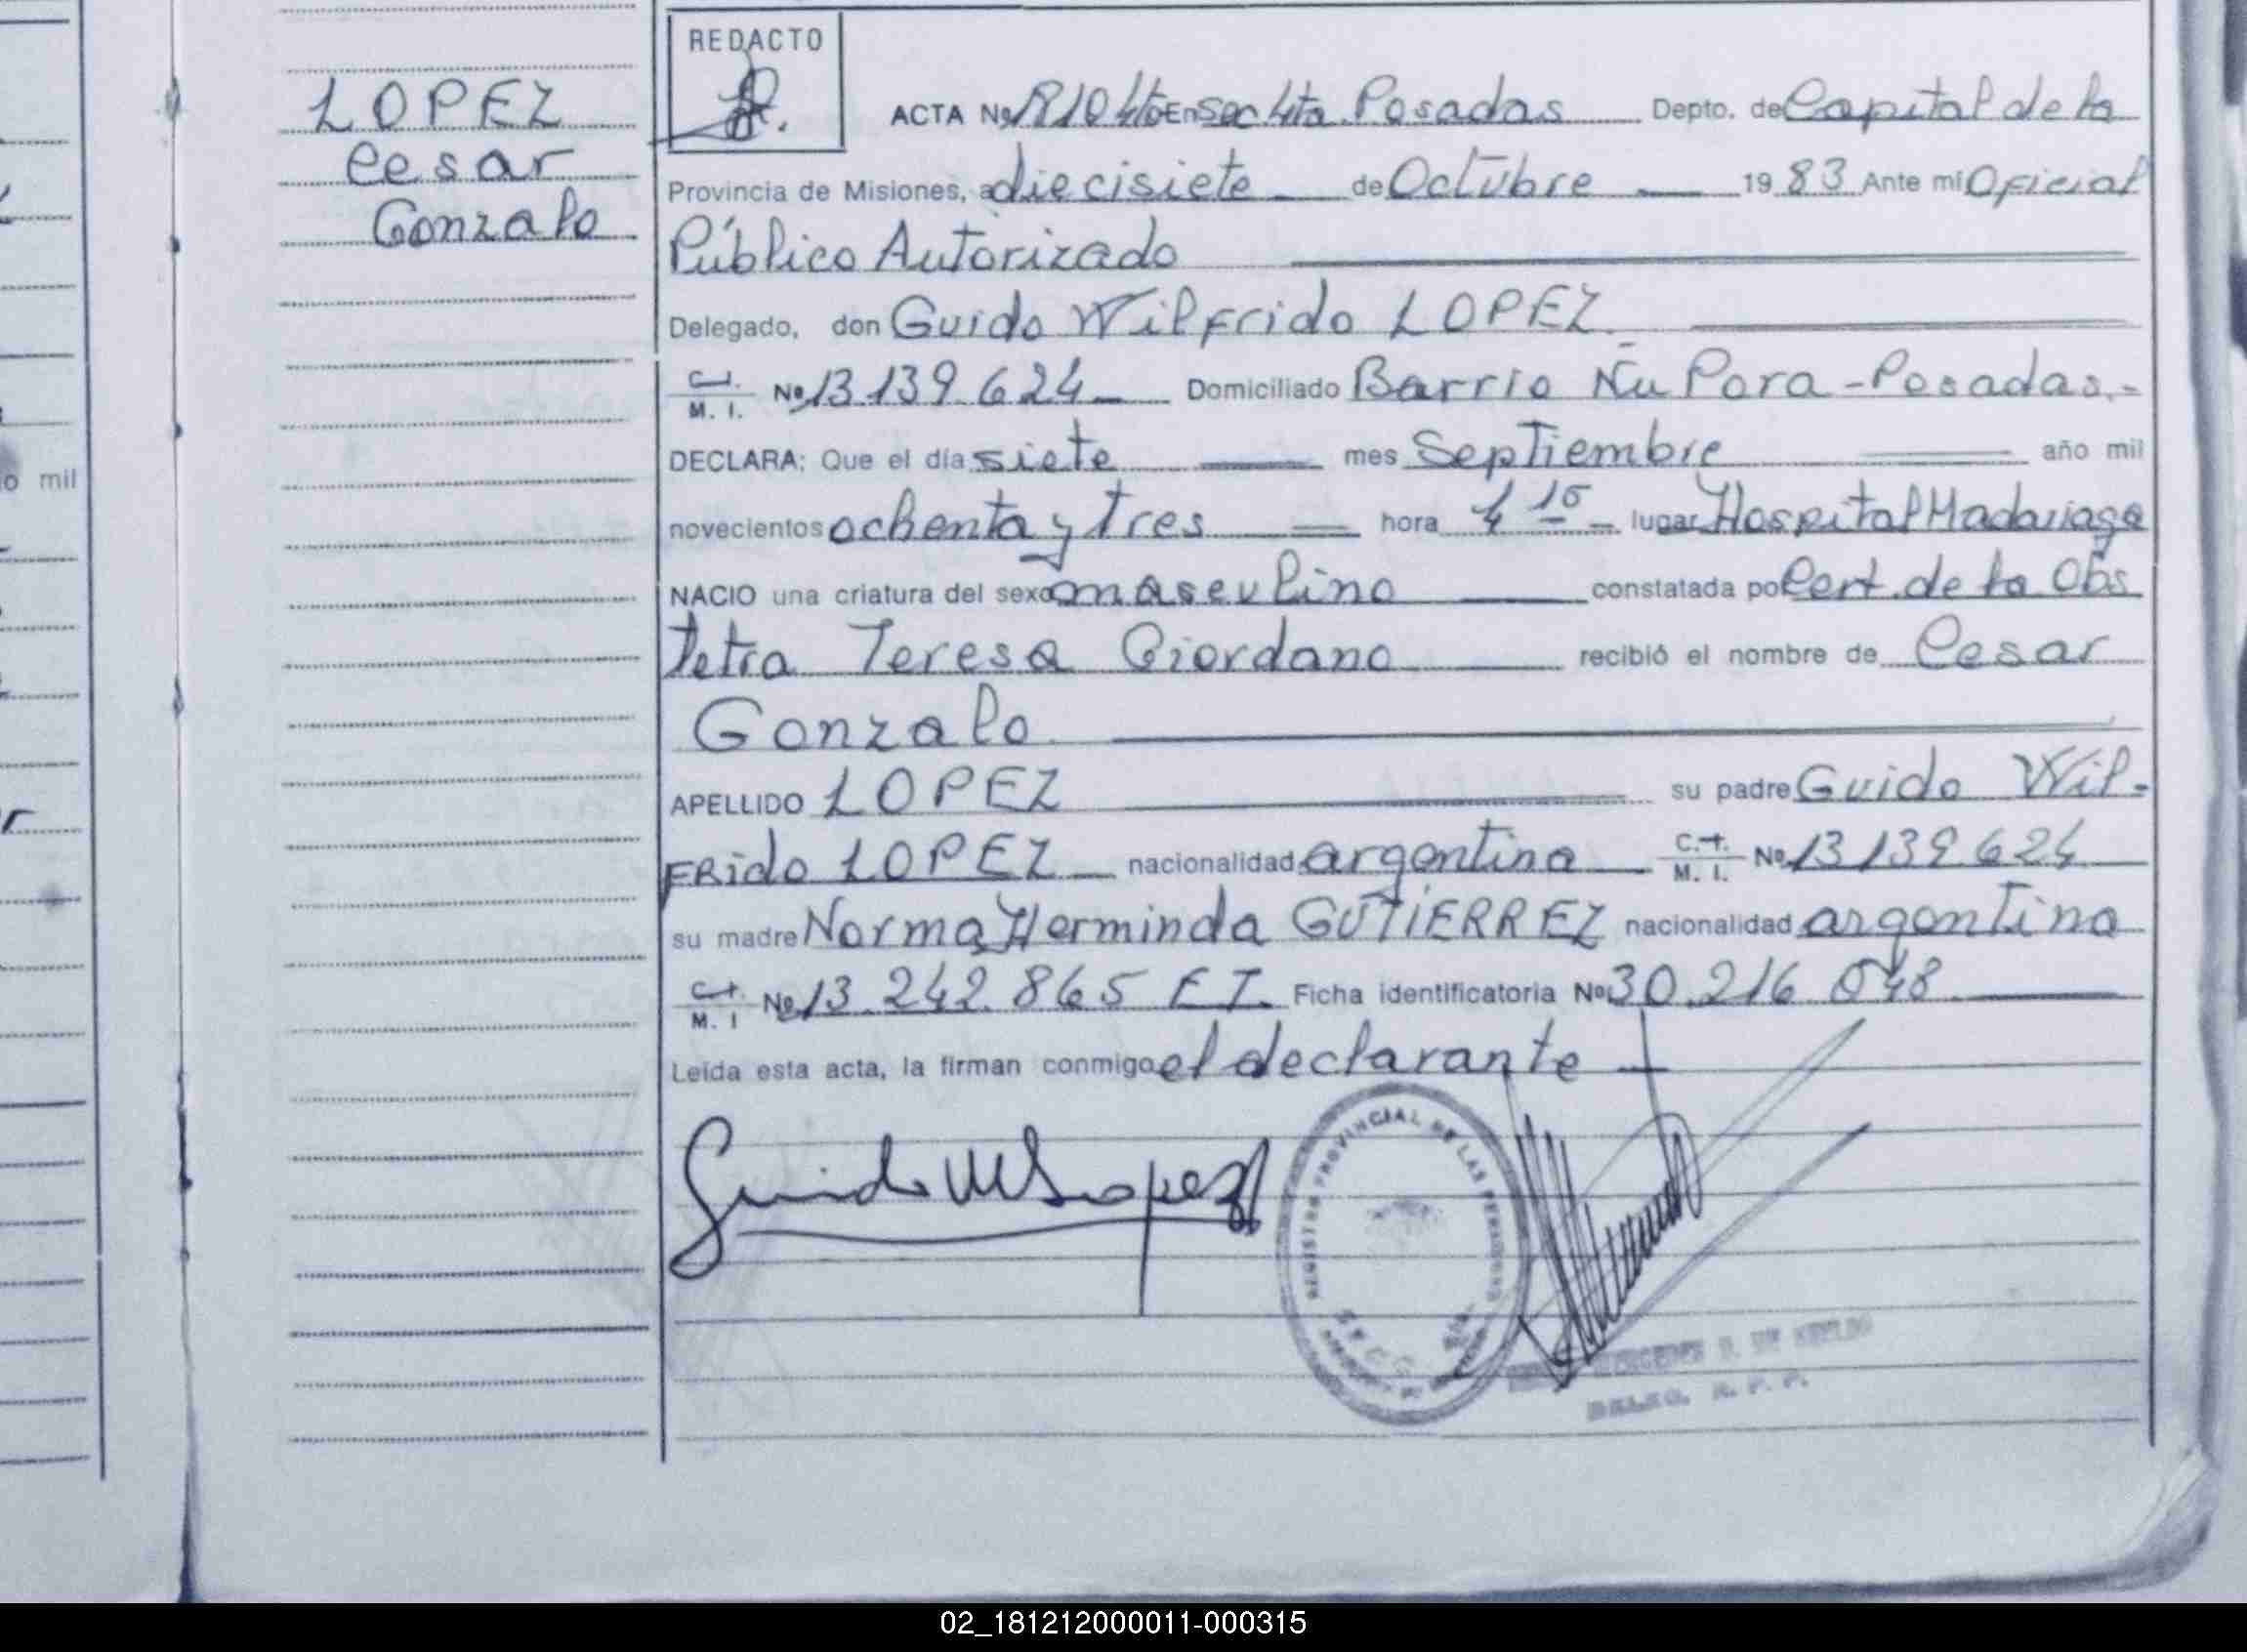 o mil
r
LOPEZ
Cesar
Gonzalo
REDACTO
ACTA Nº En Sec 4ta. Posadas Depto. de Capital de la
Provincia de Misiones, a diecisiete de Octubre 1983 Ante mi Oficial
Público Autorizado
Delegado, don Guido Wilfrido LOPEZ.
C.I. M. I. Nº 13.139.624 Domiciliado Barrio Ñu Pora - Posadas.-
DECLARA: Que el día siete mes Septiembre año mil
novecientos ochenta y tres hora 4 15 lugar Hospital Madariaga
NACIO una criatura del sexo masculino constatada por Cert. de la Obs
tetra Teresa Giordano recibió el nombre de Cesar
Gonzalo
APELLIDO LOPEZ su padre Guido Wil-
FRido LOPEZ nacionalidad argentina C.I. M. I. Nº 13139624
su madre Norma Herminda GUTIERREZ nacionalidad argentina
C.I. M. I Nº 13.242.865 Ficha identificatoria Nº 30.216.048
Leida esta acta, la firman conmigo el declarante
Guido W Lopez
REGISTRO PROVINCIAL DE LAS PERSONAS
DELEG. R. P. P.
02_181212000011-000315